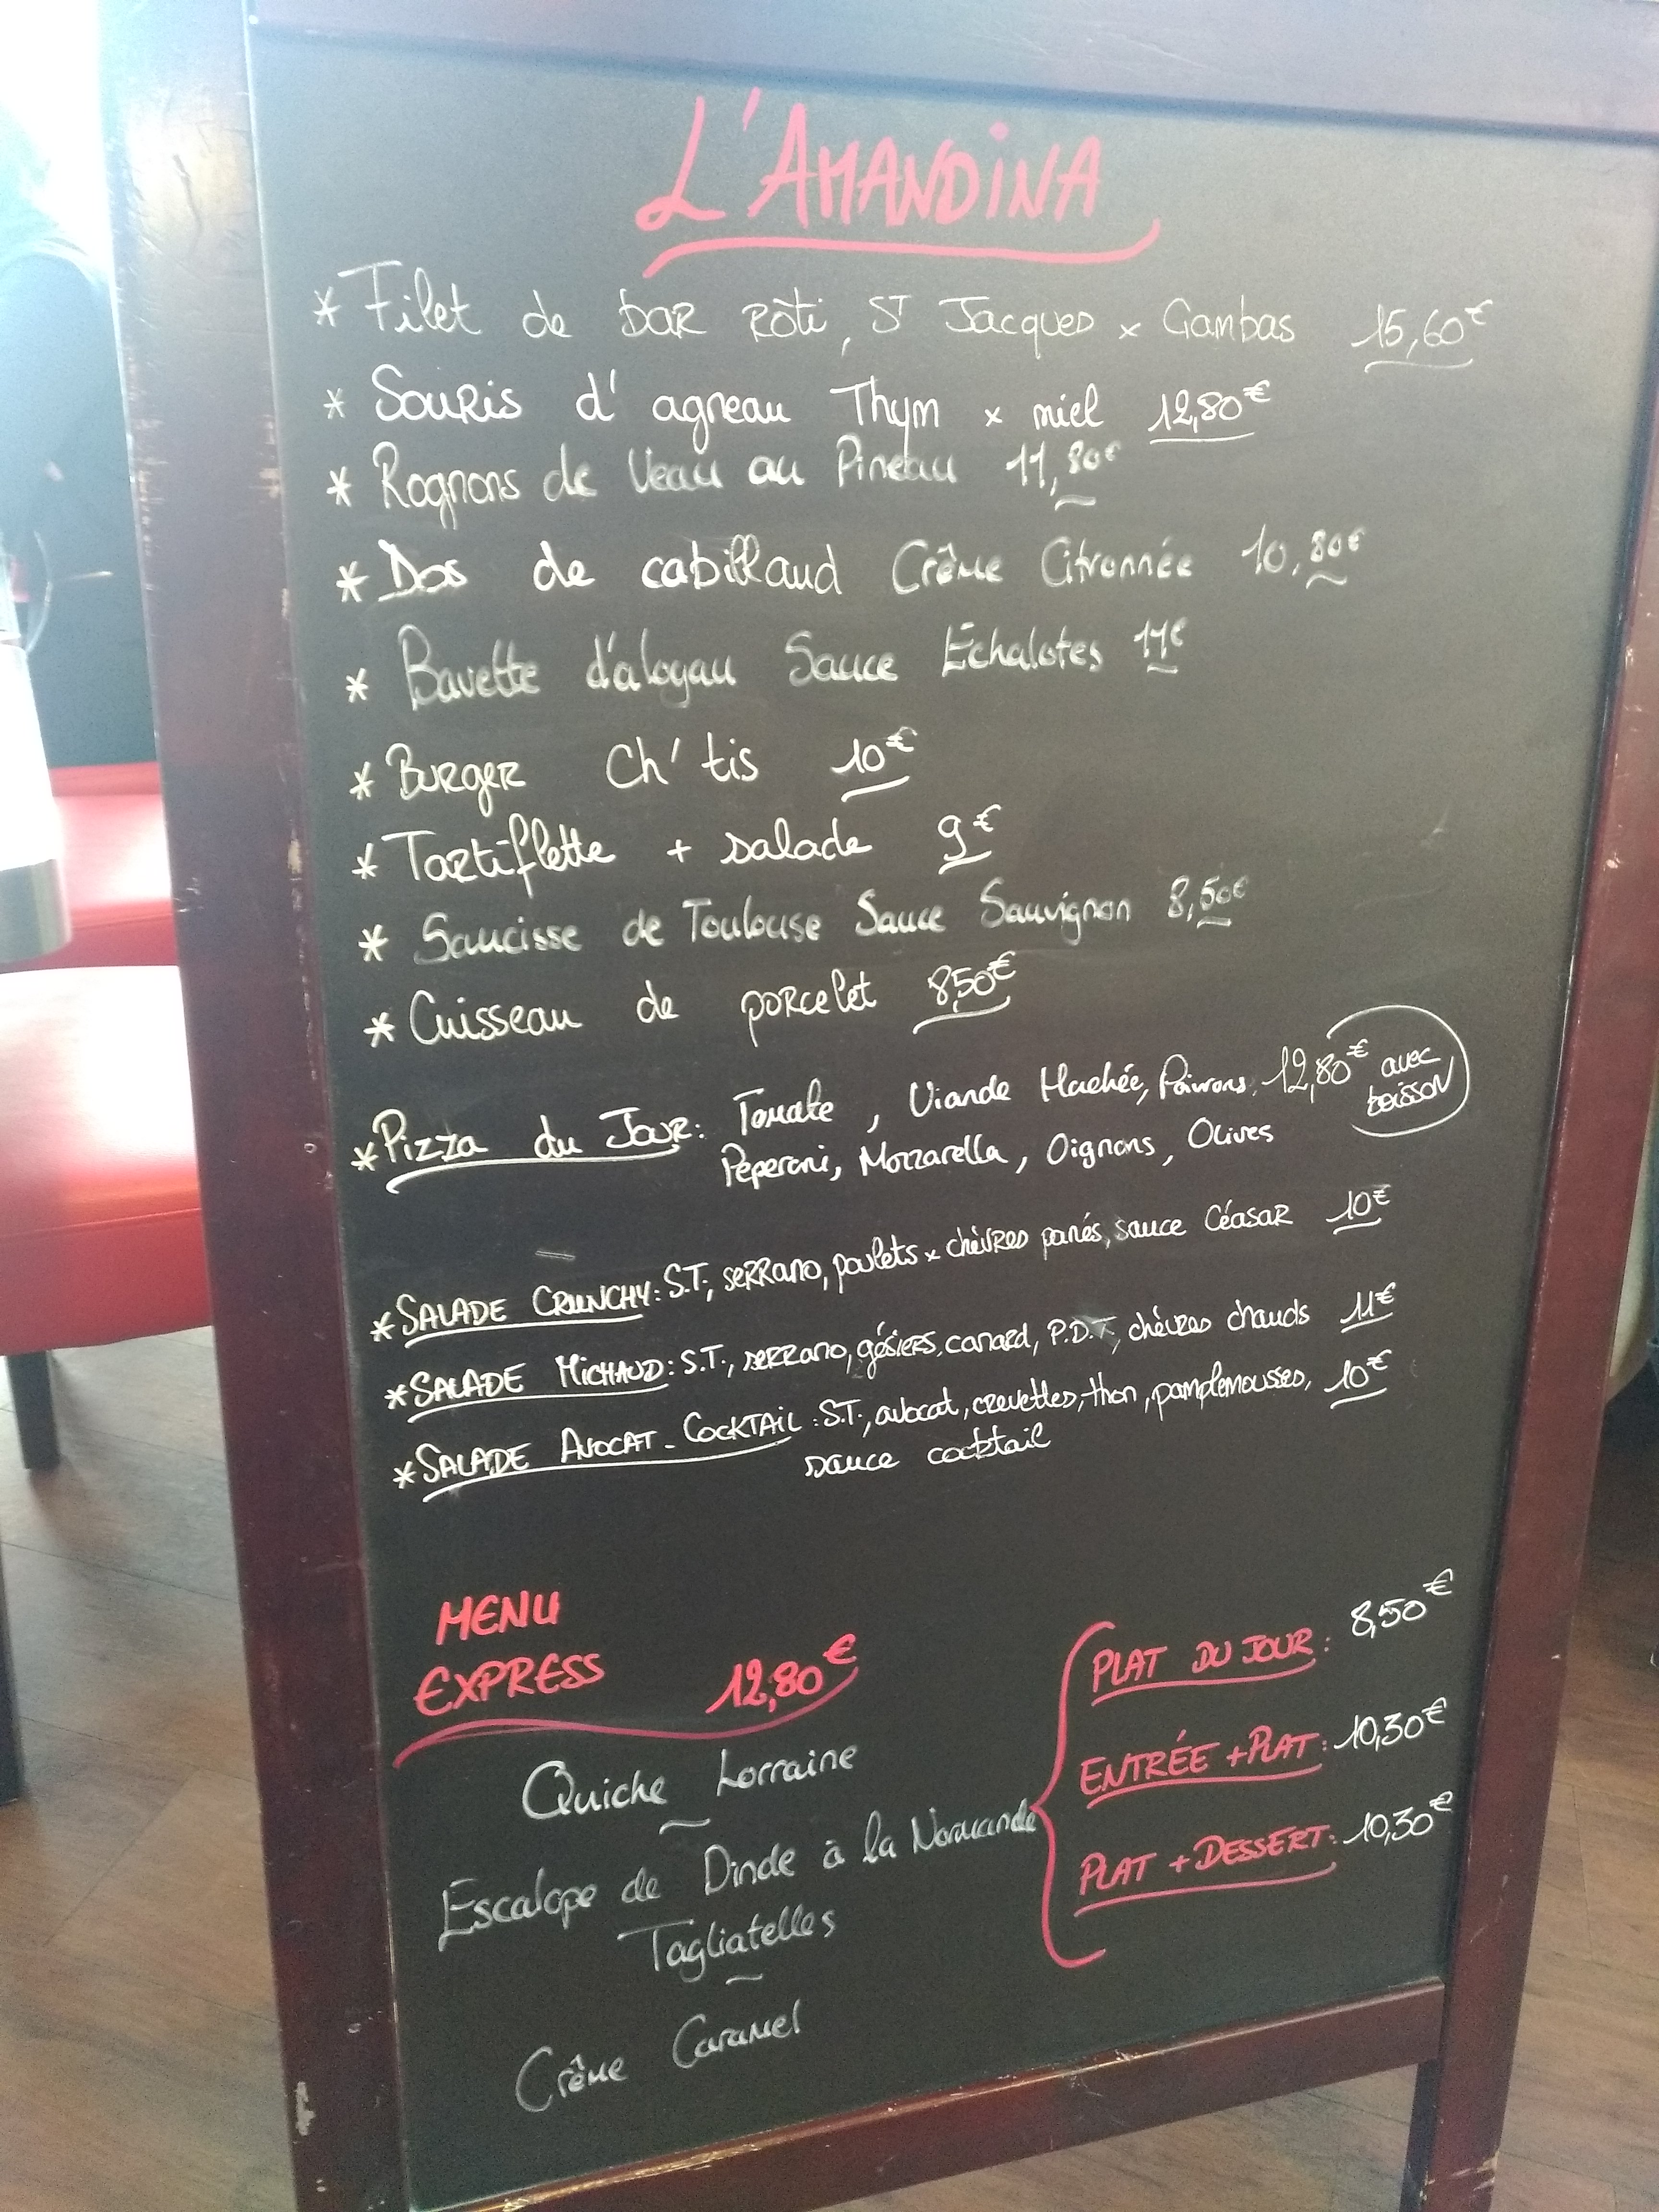 L'AMANDINA
* Filet de bar rôti, St Jacques x Gambas 15,60€
* Souris d'agneau Thym x miel 12,80€
* Rognons de Veau au Pineau 11,80€
* Dos de cabillaud Crème Citronnée 10,80€
* Bavette d'aloyau Sauce Echalotes 11€
* Burger Ch'tis 10€
* Tartiflette + salade 9€
* Saucisse de Toulouse Sauce Sauvignon 8,50€
* Cuisseau de porcelet 8,50€
* Pizza du Jour: Tomate, Viande Hachée, Poivrons, 12,80€ avec boisson
Peperoni, Mozzarella, Oignons, Olives
* SALADE CRUNCHY: S.T, serrano, poulets x chèvres panés, sauce Céasar 10€
* SALADE MICHAUD: S.T., serrano, gésiers, canard, P.D.T, chèvres chauds 11€
* SALADE AVOCAT-COCKTAIL: S.T., avocat, crevettes, thon, pamplemousses, 10€
sauce cocktail
MENU
EXPRESS 12,80€
Quiche Lorraine
~
Escalope de Dinde à la Normande
Tagliatelles
~
Crème Caramel
PLAT DU JOUR: 8,50€
ENTRÉE + PLAT: 10,30€
PLAT + DESSERT: 10,30€